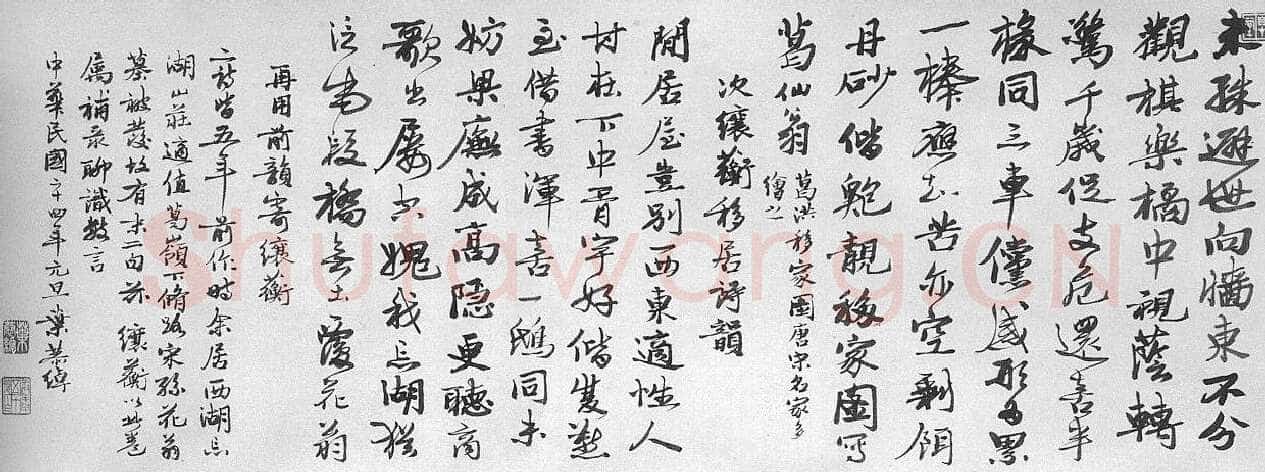 未殊避世向牆東不分
觀棋樂橘中視蔭轉
驚千歲促支危還喜半
椽同三車儻感形為累
一棒應知苦亦空剩餌
丹砂偕鮑靚移家圖寫
葛仙翁 葛洪移家圖唐宋名家多
繪之
次纕蘅移居詩韻
閒居屋豈別西東適性人
材在下中胥宇好偕雙燕
至借書渾喜一鴟同未
妨梁廡成高隱更聽商
歌出屢空媿我忘湖猶
泛宅段橋無土覆花翁
再用前韻寄纕蘅
二詩皆五年前作時余居西湖忘
湖山莊適值葛嶺下脩路宋孫花翁
墓被發故有末二句茲纕蘅以此卷
屬補录聊識數言
中華民國二十四年元旦葉恭綽
Shufawang.CN